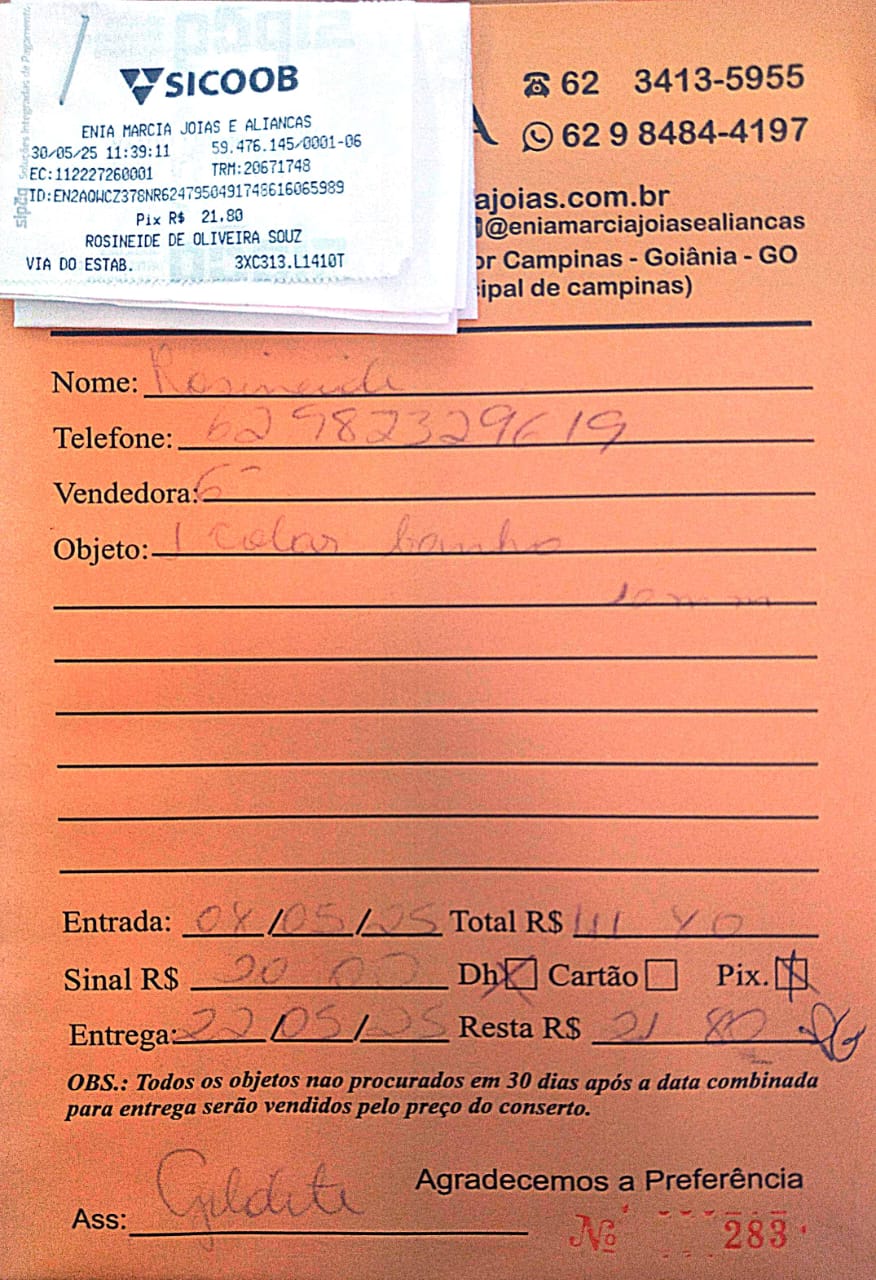 SICOOB
ENIA MARCIA JOIAS E ALIANCAS
30/05/25 11:39:11 59.476.145/0001-06
EC:112227260001 TRM:20671748
ID:EN2AOWCZ378NR6247950491748616065989
Pix R$ 21.80
ROSINEIDE DE OLIVEIRA SOUZ
VIA DO ESTAB. 3XC313.L1410T
sipag Soluções Integradas de Pagamento.
A
62 3413-5955
62 9 8484-4197
ajoias.com.br
@eniamarciajoiasealiancas
or Campinas - Goiânia - GO
cipal de campinas)
Nome: Rosineide
Telefone: 62 982329619
Vendedora: 6
Objeto: 1 colar banho
Entrada: 08/05/25 Total R$
Sinal R$ 20 00 Dh Cartão Pix.
Entrega: 22/05/25 Resta R$ 21 80
OBS.: Todos os objetos nao procurados em 30 dias após a data combinada
para entrega serão vendidos pelo preço do conserto.
Agradecemos a Preferência
Ass: Gildete
Nº 283